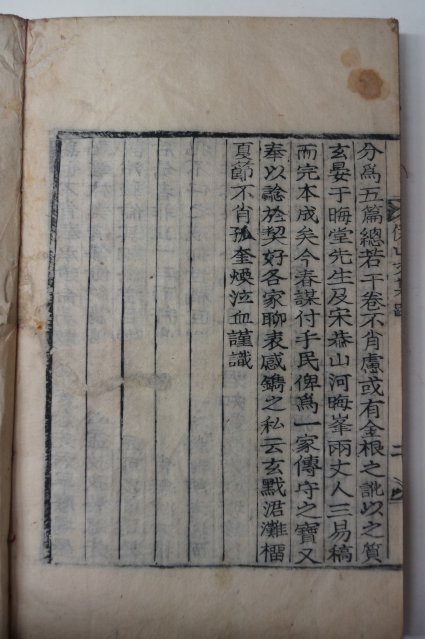 分爲五篇總若干卷不肖慮或有金根之訛以之質
玄晏于晦堂先生及宋恭山河晦峯兩丈人三易稿
而完本成矣今春謀付手民俾爲一家傳守之寶又
奉以諗於契好各家聊表感鐫之私云玄黓涒灘橊
夏節不肖孤奎煐泣血謹識